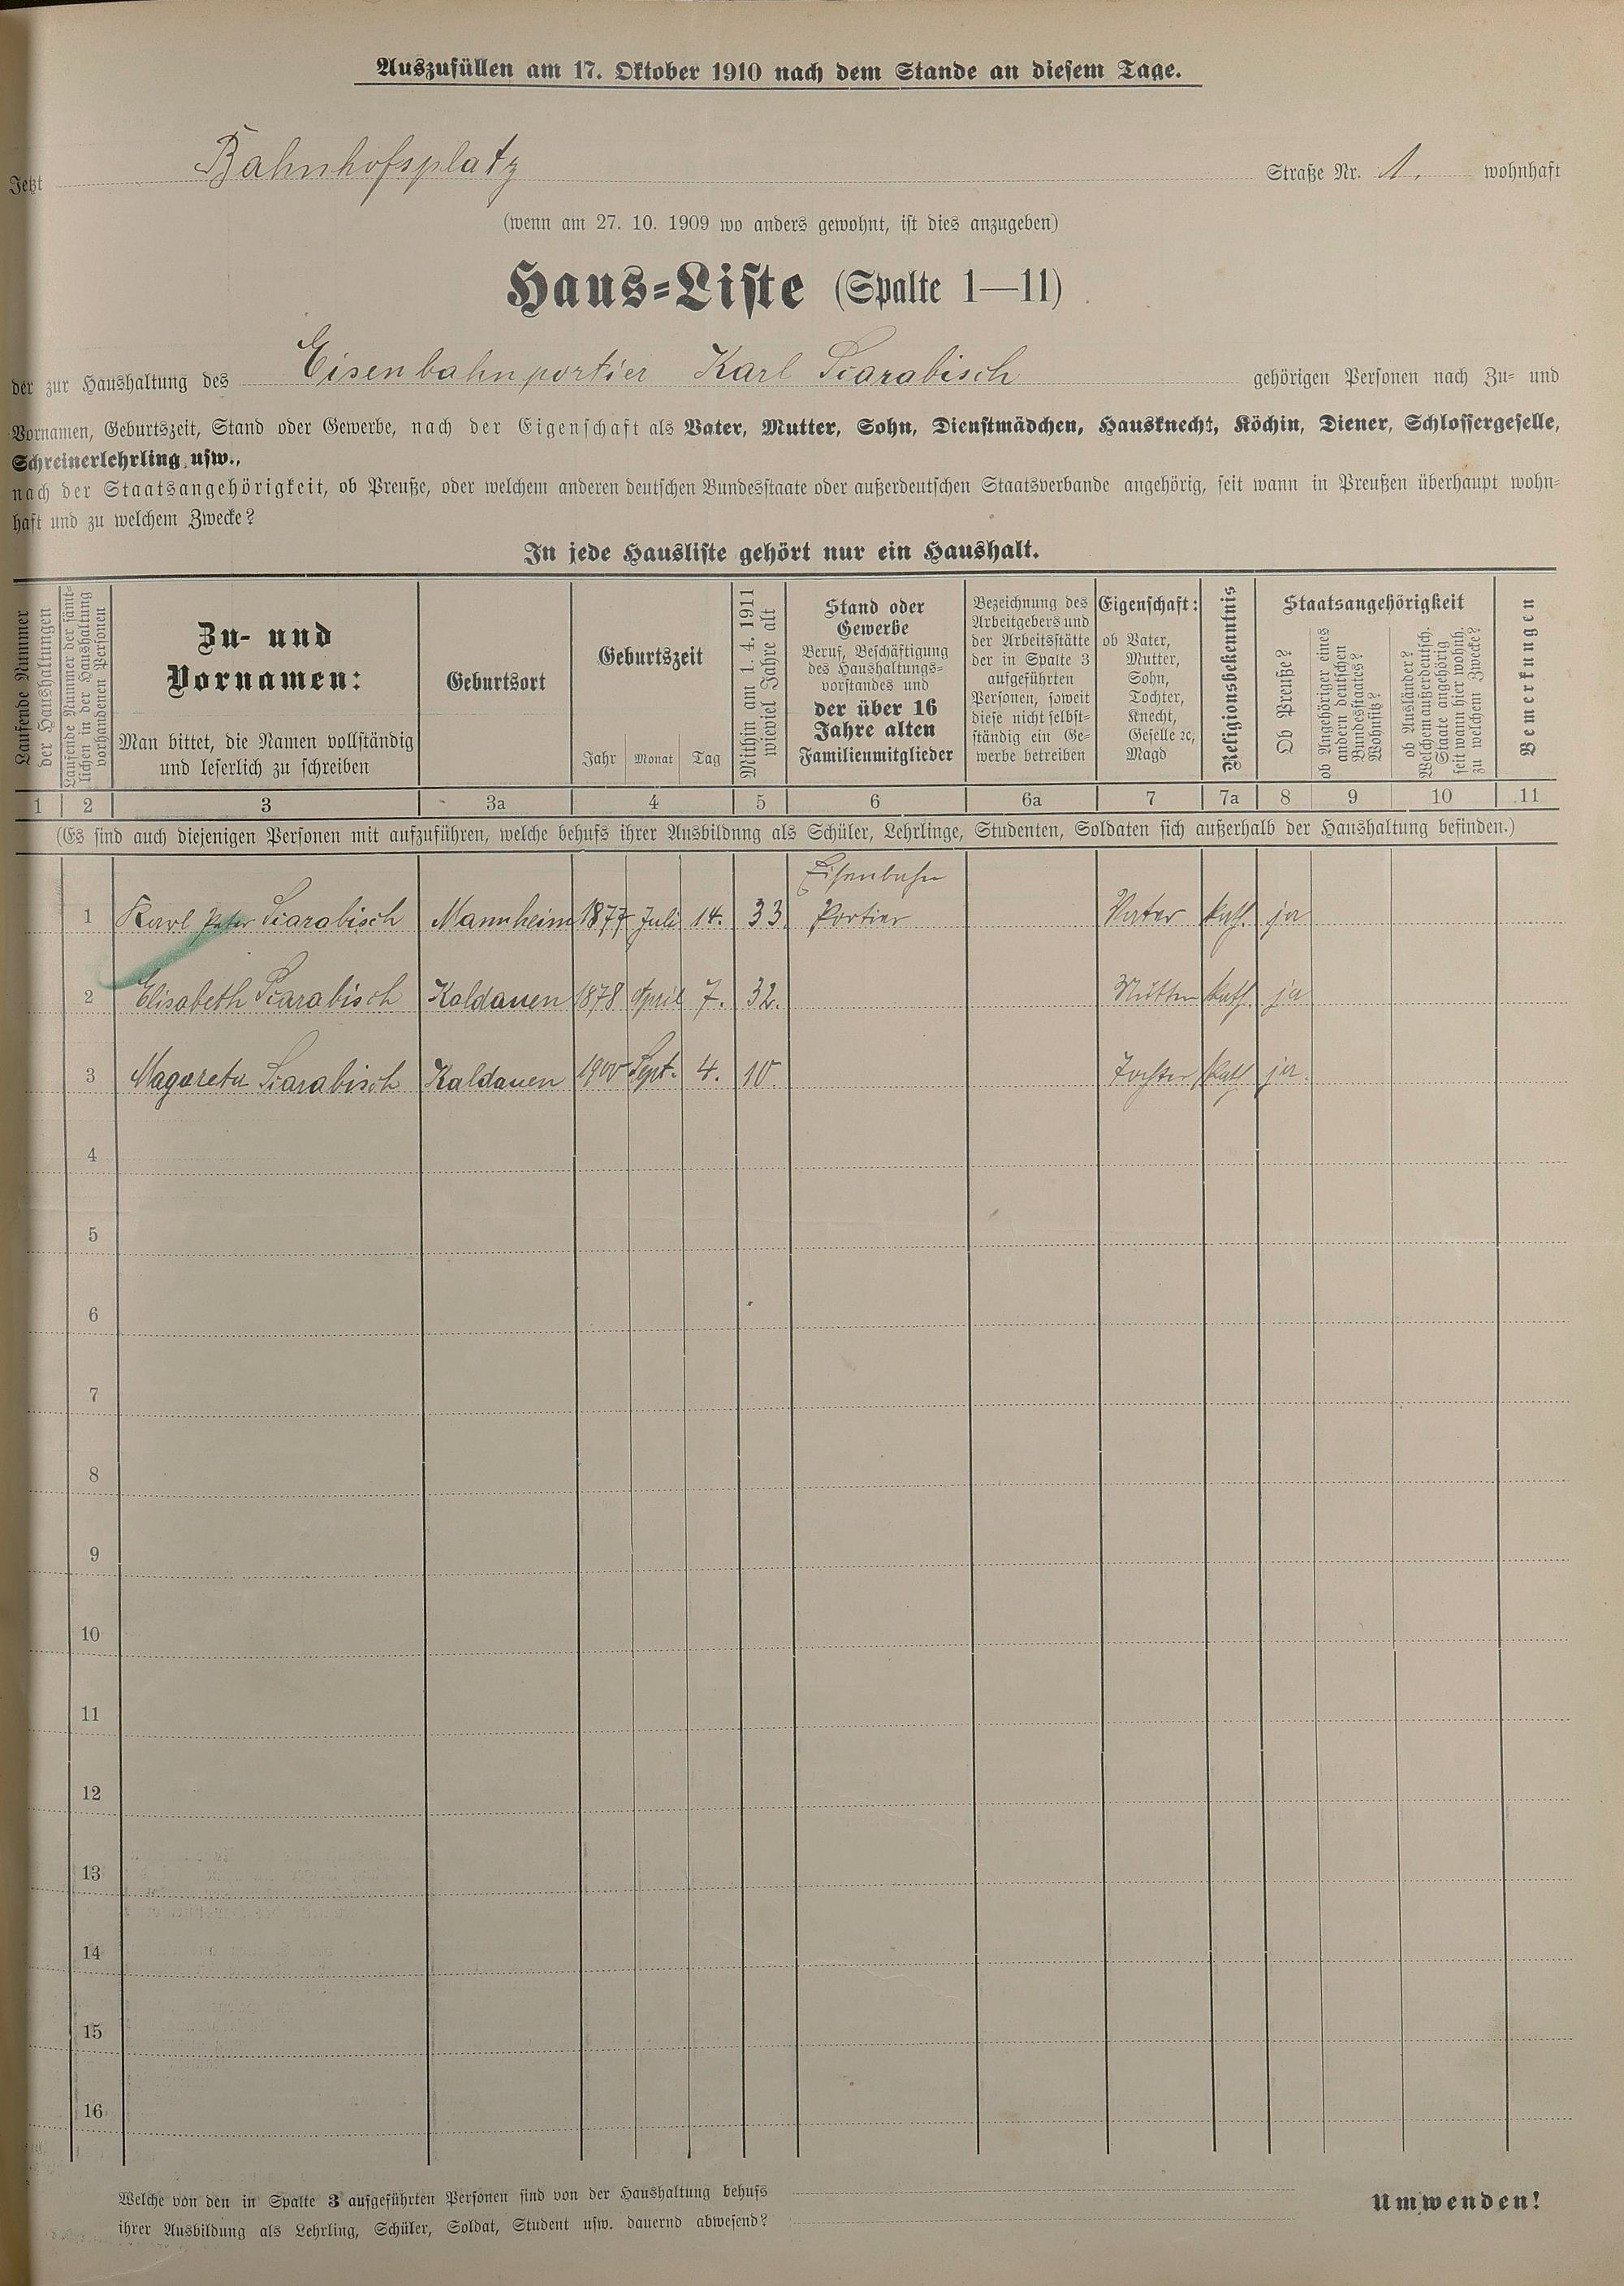 Auszufüllen am 17. Oktober 1910 nach dem Stande an diesem Tage.
Jetzt Bahnhofsplatz Straße Nr. 1. wohnhaft
(wenn am 27. 10. 1909 wo anders gewohnt, ist dies anzugeben)
Haus-Liste (Spalte 1—11)
der zur Haushaltung des Eisenbahnportier Karl Scarabisch gehörigen Personen nach Zu- und
Vornamen, Geburtszeit, Stand oder Gewerbe, nach der Eigenschaft als Vater, Mutter, Sohn, Dienstmädchen, Hausknecht, Köchin, Diener, Schlossergeselle,
Schreinerlehrling usw.,
nach der Staatsangehörigkeit, ob Preuße, oder welchem anderen deutschen Bundesstaate oder außerdeutschen Staatsverbande angehörig, seit wann in Preußen überhaupt wohn-
haft und zu welchem Zwecke?
In jede Hausliste gehört nur ein Haushalt.
Laufende Nummer
der Haushaltungen
Laufende Nummer der sämt-
lichen in der Haushaltung
vorhandenen Personen
Zu- und
Vornamen:
Man bittet, die Namen vollständig
und leserlich zu schreiben
Geburtsort
Geburtszeit
Jahr Monat Tag
Mithin am 1. 4. 1911
wieviel Jahre alt
Stand oder
Gewerbe
Beruf, Beschäftigung
des Haushaltungs-
vorstandes und
der über 16
Jahre alten
Familienmitglieder
Bezeichnung des
Arbeitgebers und
der Arbeitsstätte
der in Spalte 3
aufgeführten
Personen, soweit
diese nicht selbst-
ständig ein Ge-
werbe betreiben
Eigenschaft:
ob Vater,
Mutter,
Sohn,
Tochter,
Knecht,
Geselle ꝛc,
Magd
Religionsbekenntnis
Staatsangehörigkeit
Ob Preuße?
ob Angehöriger eines
andern deutschen
Bundesstaates?
Wohnsitz?
ob Ausländer?
Welchem außerdeutsch.
Staate angehörig
seit wann hier wohnh.
zu welchem Zwecke?
Bemerkungen
1 2 3 3a 4 5 6 6a 7 7a 8 9 10 11
(Es sind auch diejenigen Personen mit aufzuführen, welche behufs ihrer Ausbildung als Schüler, Lehrlinge, Studenten, Soldaten sich außerhalb der Haushaltung befinden.)
Eisenbahn
1 Karl Peter Scarabisch Mannheim 1877 Juli 14. 33 Portier Vater kath. ja
2 Elisabeth Scarabisch Kaldauen 1878 April 7. 32. Mutter kath. ja
3 Magareta Scarabisch Kaldauen 1900 Sept. 4. 10. Tochter kath. ja.
4
5
6
7
8
9
10
11
12
13
14
15
16
Welche von den in Spalte 3 aufgeführten Personen sind von der Haushaltung behufs
ihrer Ausbildung als Lehrling, Schüler, Soldat, Student usw. dauernd abwesend?
Umwenden!